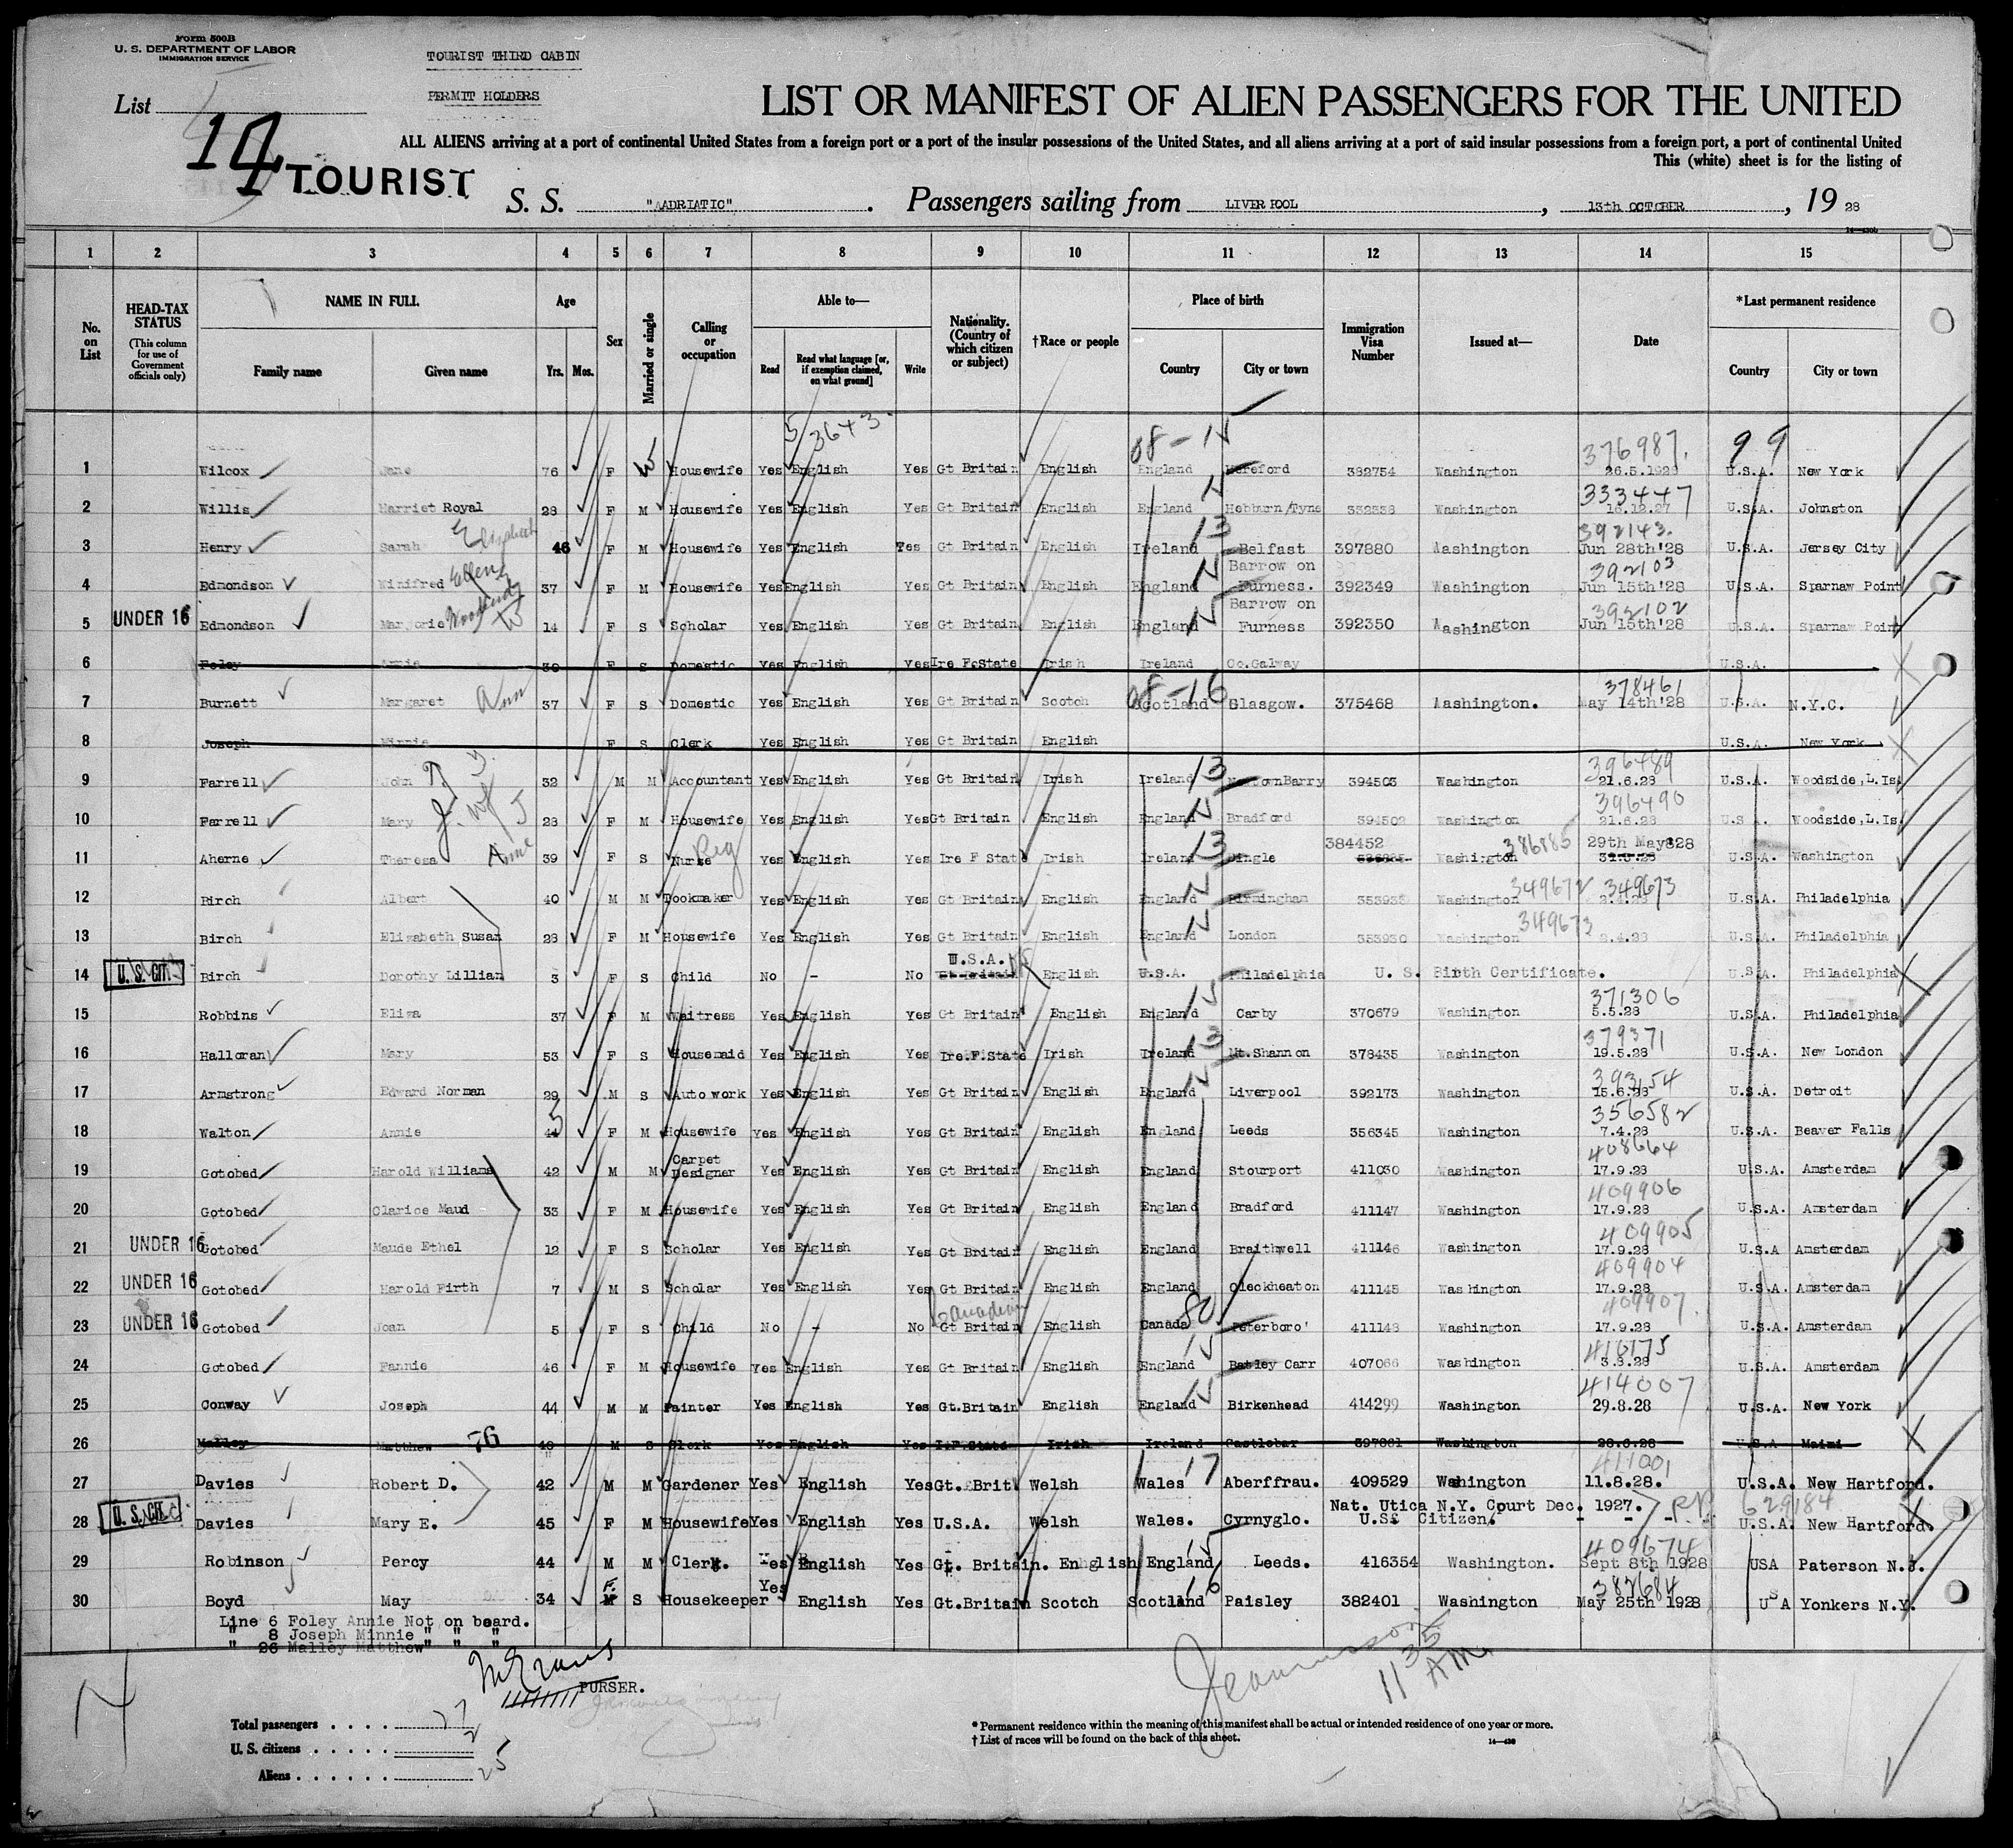 Form 500B
U. S. DEPARTMENT OF LABOR
IMMIGRATION SERVICE
TOURIST THIRD CABIN
PERMIT HOLDERS
List
14
TOURIST
LIST OR MANIFEST OF ALIEN PASSENGERS FOR THE UNITED
ALL ALIENS arriving at a port of continental United States from a foreign port or a port of the insular possessions of the United States, and all aliens arriving at a port of said insular possessions from a foreign port, a port of continental United
This (white) sheet is for the listing of
S. S. "AADRIATIC". Passengers sailing from LIVERPOOL, 13th OCTOBER, 19 28
1 2 3 4 5 6 7 8 9 10 11 12 13 14 15
No. on List
HEAD-TAX STATUS
(This column for use of Government officials only)
NAME IN FULL
Family name Given name
Age
Yrs. Mos.
Sex
Married or single
Calling or occupation
Able to—
Read Read what language [or, if exemption claimed, on what ground] Write
Nationality. (Country of which citizen or subject)
†Race or people
Place of birth
Country City or town
Immigration Visa Number
Issued at—
Date
*Last permanent residence
Country City or town
3643
08-15 376987. 99
1 Wilcox Jane 76 F W Housewife Yes English Yes Gt Britain English England Hereford 382754 Washington 26.5.1928 U.S.A. New York
333447
2 Willis Harriet Royal 28 F M Housewife Yes English Yes Gt Britain English England Hebburn/Tyne Washington 16.12.27 U.S.A. Johnston
Elizabeth 13 392143.
3 Henry Sarah 46 F M Housewife Yes English Yes Gt Britain English Ireland Belfast 397880 Washington Jun 28th'28 U.S.A. Jersey City
Ellen Barrow on 392103
4 Edmondson Winifred 37 F M Housewife Yes English Yes Gt Britain English England Furness. 392349 Washington Jun 15th'28 U.S.A. Sparnaw Point
Barrow on 392102
5 UNDER 16 Edmondson Marjorie 14 F S Scholar Yes English Yes Gt Britain English England Furness 392350 Washington Jun 15th'28 U.S.A. Sparnaw Point
6 Foley Annie 30 F S Domestic Yes English Yes Ire F.State Irish Ireland Co.Galway U.S.A.
08-16 378461
7 Burnett Margaret Ann 37 F S Domestic Yes English Yes Gt Britain Scotch Scotland Glasgow. 375468 Washington. May 14th'28 U.S.A. N.Y.C.
8 Joseph Minnie F S Clerk Yes English Yes Gt Britain English U.S.A. New York
13 396489
9 Farrell John 32 M M Accountant Yes English Yes Gt Britain Irish Ireland 394503 Washington 21.6.28 U.S.A. Woodside,L.Is
396490
10 Farrell Mary 28 F M Housewife Yes English Yes Gt Britain English England Bradford 394502 Washington 21.6.28 U.S.A. Woodside,L.Is
Anne Reg 13 384452 386885 29th May828
11 Aherne Theresa 39 F S Nurse Yes English Yes Ire F State Irish Ireland Dingle Washington U.S.A. Washington
349672 349673
12 Birch Albert 40 M M Bookmaker Yes English Yes Gt Britain English England Birmingham Washington 2.4.28 U.S.A. Philadelphia
349673
13 Birch Elizabeth Susan 28 F M Housewife Yes English Yes Gt Britain English England London 353930 Washington 2.4.28 U.S.A. Philadelphia
U.S.A.
14 U.S. CIT. Birch Dorothy Lillian 3 F S Child No - No Gt Britain English U.S.A. Philadelphia U. S. Birth Certificate. U.S.A. Philadelphia
371306
15 Robbins Eliza 37 F M Waitress Yes English Yes Gt Britain English England Carby 370679 Washington 5.5.28 U.S.A. Philadelphia
13 379371
16 Halloran Mary 53 F S Housemaid Yes English Yes Ire.F.State Irish Ireland Mt.Shannon 378435 Washington 19.5.28 U.S.A. New London
393154
17 Armstrong Edward Norman 29 M S Auto work Yes English Yes Gt Britain English England Liverpool 392173 Washington 15.6.28 U.S.A. Detroit
356582
18 Walton Annie 44 F M Housewife Yes English Yes Gt Britain English England Leeds 356345 Washington 7.4.28 U.S.A. Beaver Falls
Carpet 408664
19 Gotobed Harold Williams 42 M M Designer Yes English Yes Gt Britain English England Stourport 411030 Washington 17.9.28 U.S.A. Amsterdam
409906
20 Gotobed Clarice Maud 33 F M Housewife Yes English Yes Gt Britain English England Bradford 411147 Washington 17.9.28 U.S.A. Amsterdam
409905
21 UNDER 16 Gotobed Maude Ethel 12 F S Scholar Yes English Yes Gt Britain English England Braithwell 411146 Washington 17.9.28 U.S.A Amsterdam
409904
22 UNDER 16 Gotobed Harold Firth 7 M S Scholar Yes English Yes Gt Britain English England Cleckheaton 411145 Washington 17.9.28 U.S.A. Amsterdam
Canadian 80 409907.
23 UNDER 16 Gotobed Joan 5 F S Child No - No Gt Britain English Canada Peterboro' 411148 Washington 17.9.28 U.S.A. Amsterdam
24 Gotobed Fannie 46 F M Housewife Yes English Yes Gt Britain English England Batley Carr 407066 Washington 3.8.28 U.S.A. Amsterdam
414007
25 Conway Joseph 44 M M Painter Yes English Yes Gt.Britain English England Birkenhead 414299 Washington 29.8.28 U.S.A. New York
76
26 Malley Matthew M S Clerk Yes English Yes I.F.State Irish Ireland Castlebar 397881 Washington 28.6.28 U.S.A Maimi
17 411001
27 Davies Robert D. 42 M M Gardener Yes English Yes Gt. Brit Welsh Wales Aberffrau. 409529 Washington 11.8.28. U.S.A. New Hartford.
Nat. Utica N.Y. Court Dec. 1927. 629184
28 U.S. CIT. Davies Mary E. 45 F M Housewife Yes English Yes U.S.A. Welsh Wales. Cyrnyglo. U.S. Citizen. - - - - U.S.A. New Hartford.
409674
29 Robinson Percy 44 M M Clerk. Yes English Yes Gt. Britain. Enhglish England Leeds. 416354 Washington. Sept 8th 1928 USA Paterson N.J.
F. Yes 16 382684
30 Boyd May 34 M S Housekeeper English Yes Gt.Britain Scotch Scotland Paisley 382401 Washington May 25th 1928 USA Yonkers N.Y.
Line 6 Foley Annie Not on board.
" 8 Joseph Minnie " " "
" 26 Malley Matthew " " "
PURSER.
11 35 AM.
Total passengers . . . . 27
U. S. citizens . . . . . 2
Aliens . . . . . . 25
* Permanent residence within the meaning of this manifest shall be actual or intended residence of one year or more.
† List of races will be found on the back of this sheet.
14—430